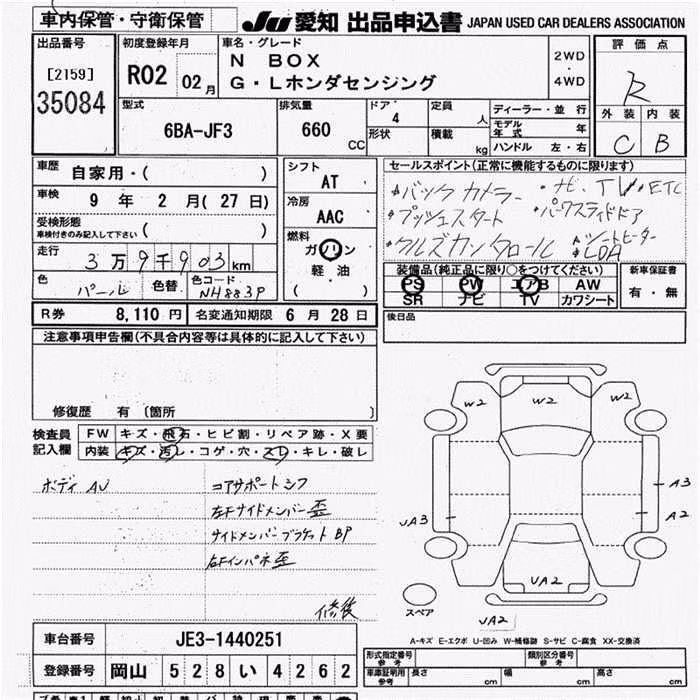 車内保管・守衛保管
JU 愛知 出品申込書 JAPAN USED CAR DEALERS ASSOCIATION
出品番号
[2159]
35084
初度登録年月
R02 02月
車名・グレード
N BOX
G・Lホンダセンシング
2WD
・
4WD
評価点
R
外装 内装
C B
型式
6BA-JF3
排気量
660 CC
ドア
4
形状
定員
人
積載
kg
ディーラー・並行
モデル年式 年
ハンドル 左・右
車歴 自家用・( )
車検 9年 2月(27日)
受検形態
車検付きのみ記入して下さい ( )
走行 3万9千903km
色 パール 色替 色コード NH883P
シフト
AT
冷房
AAC
燃料
ガソリン
軽油
( )
セールスポイント(正常に機能するものに限ります)
バックカメラー ・ナビ、TV・ETC
プッシュスタート ・パークスライドドア
クルズカントロール シートヒーター
LDA
装備品(純正品に限り○をつけてください)
PS PW エアB AW
SR ナビ TV カワシート
新車保証書
有・無
R券 8,110円 名変通知期限 6月28日
後日品
注意事項申告欄(不具合内容等は具体的に記入して下さい)
修復歴 有〔箇所 〕
検査員記入欄
FW キズ・飛石・ヒビ割・リペア跡・X要
内装 キズ・汚レ・コゲ・穴・スレ・キレ・破レ
ボディ AU
コアサポートシフ
左Fサイドメンバー歪
サイドメンバーブラケット BP
右Fインパネ歪
修復
W2
W2
W2
A3
A2
UA3
UA2
スペア
UA2
A-キズ E-エクボ U-凹み W-補修跡 S-サビ C-腐食 XX-交換済
車台番号 JE3-1440251
登録番号 岡山 528 い 4262
形式指定番号
参考
類別区分番号
参考
車庫証明用
参考
長さ cm
幅 cm
高さ cm